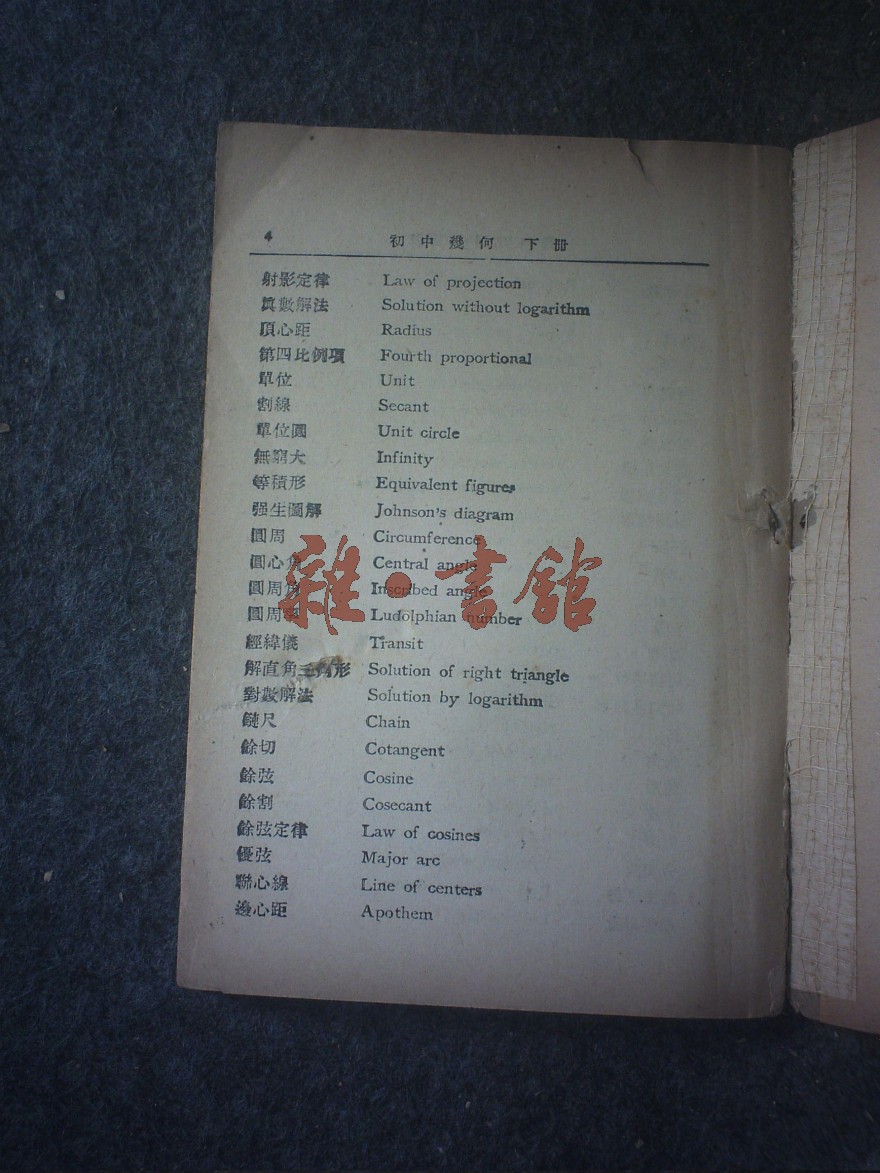 4 初中幾何 下冊
射影定律 Law of projection
眞數解法 Solution without logarithm
頂心距 Radius
第四比例項 Fourth proportional
單位 Unit
割線 Secant
單位圓 Unit circle
無窮大 Infinity
等積形 Equivalent figures
强生圖解 Johnson's diagram
圓周 Circumference
圓心角 Central angle
圓周角 Inscribed angle
圓周率 Ludolphian number
經緯儀 Transit
解直角三角形 Solution of right triangle
對數解法 Solution by logarithm
鏈尺 Chain
餘切 Cotangent
餘弦 Cosine
餘割 Cosecant
餘弦定律 Law of cosines
優弦 Major arc
聯心線 Line of centers
邊心距 Apothem
雜·書館